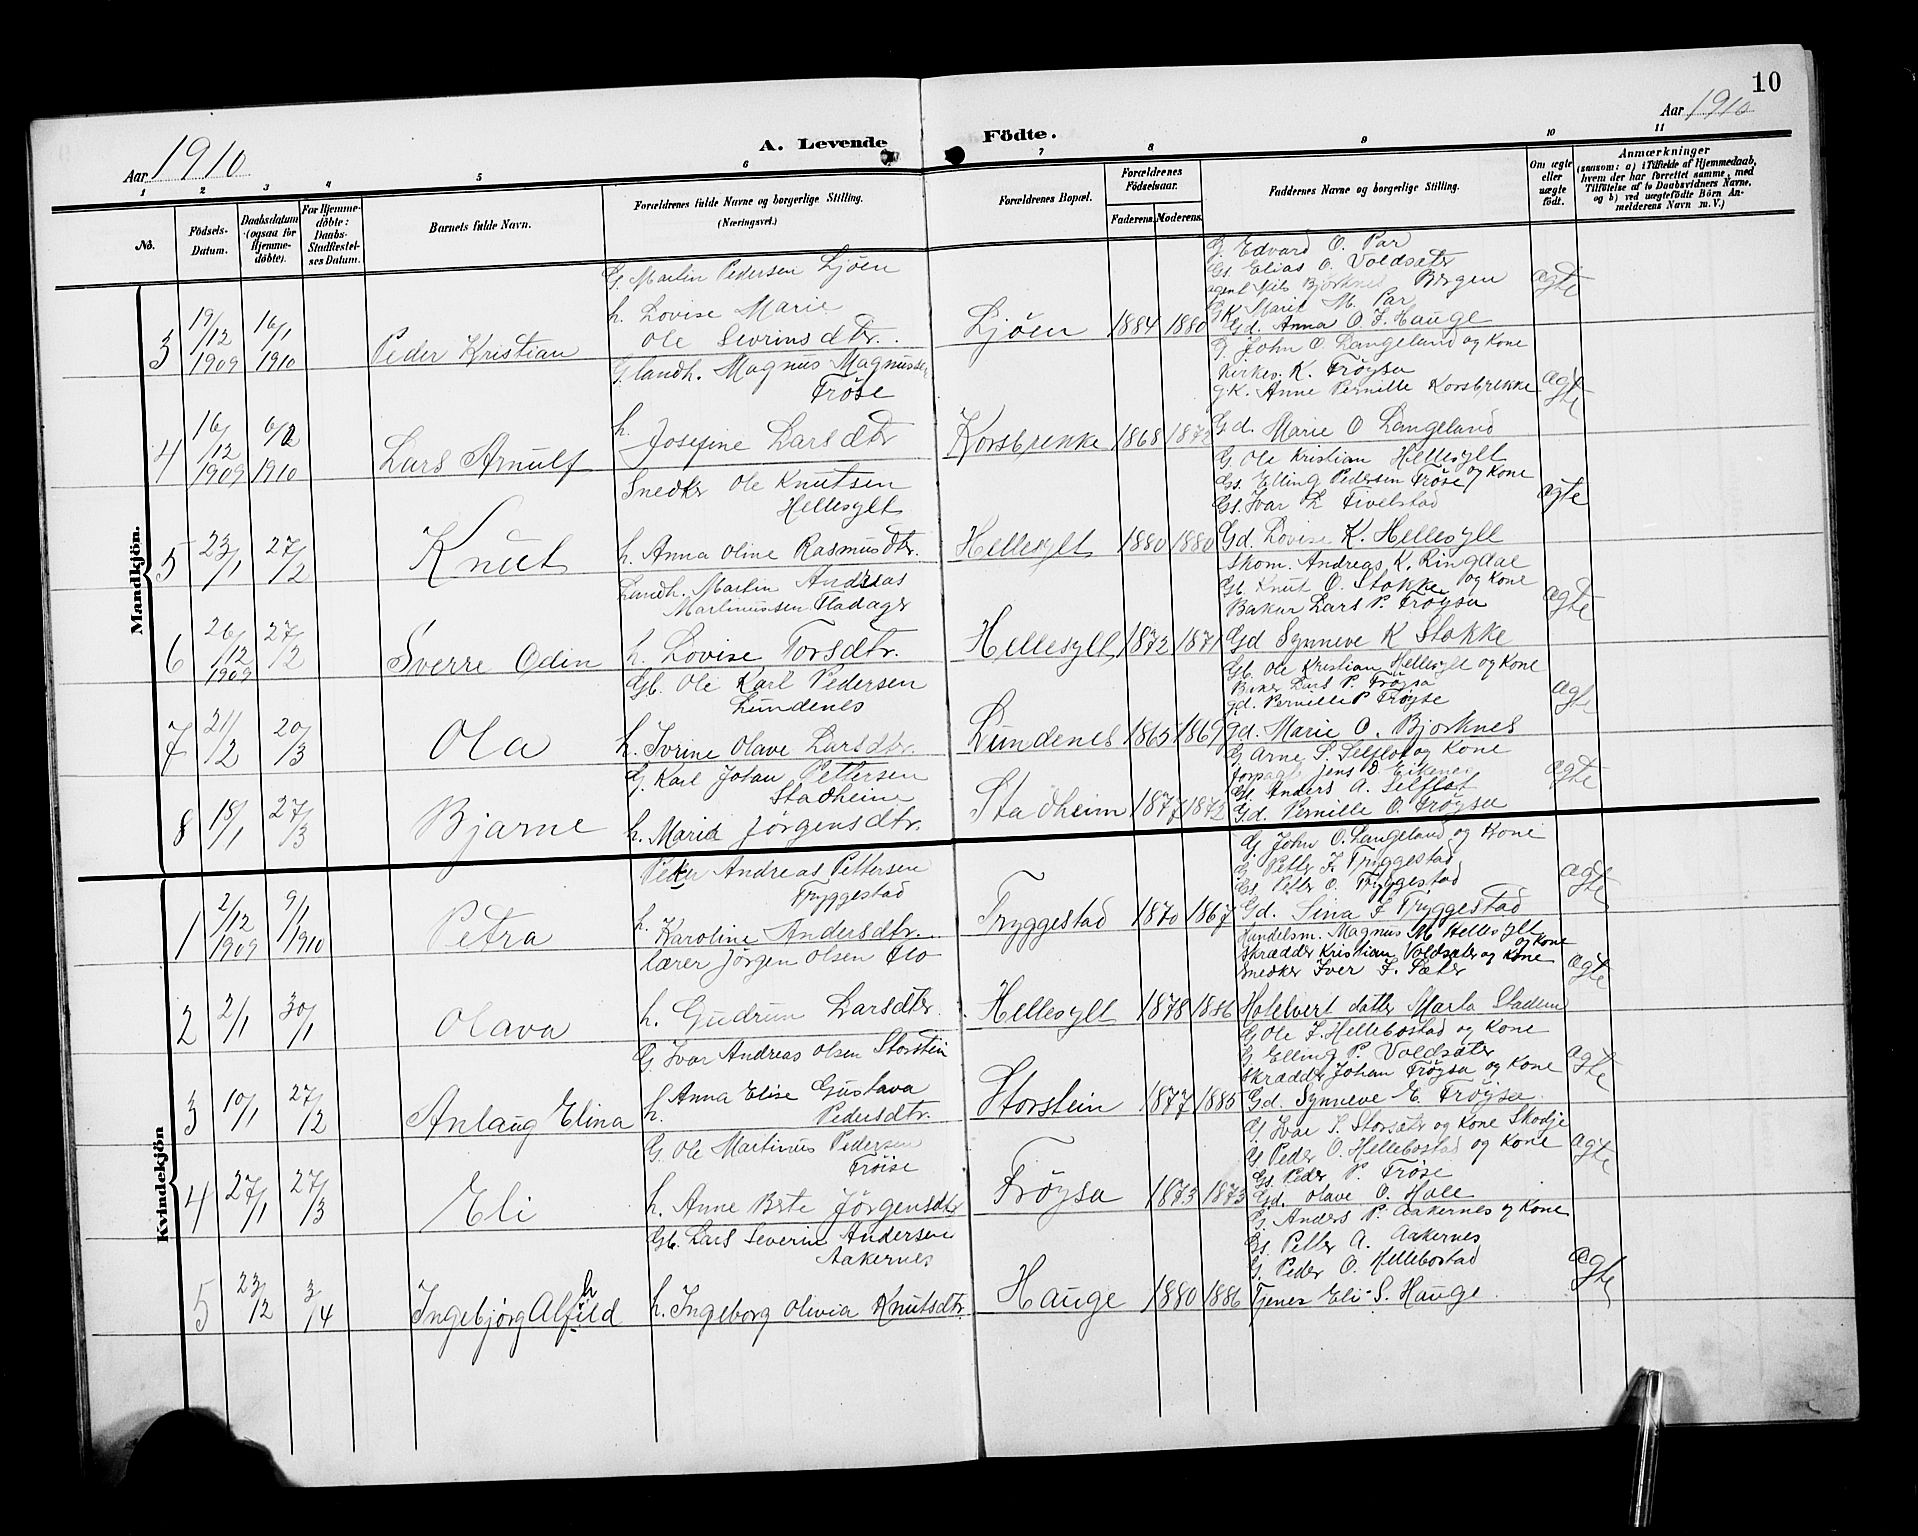 10
Aar 1910
A. Levende Födte.
Aar 1910
1 2 3 4 5 6 7 8 9 10 11
No.
Födsels-Datum.
Daabsdatum (ogsaa for Hjemmedöbte).
For Hjemmedöbte: Daabs-Stadfæstelses Datum.
Barnets fulde Navn.
Forældrenes fulde Navne og borgerlige Stilling. (Næringsvei.)
Forældrenes Bopæl.
Forældrenes Födselsaar.
Faderens. Moderens.
Faddernes Navne og borgerlige Stilling.
Om ægte eller uægte födt.
Anmærkninger
(saasom: a) i Tilfælde af Hjemmedaab, hvem der har forrettet samme, med Tilföielse af to Daabsvidners Navne, og b) ved uægtefödte Börn Anmelderens Navn m. V.)
Mandkjön.
3 19/12 1909 16/1 1910 Peder Kristian
G. Martin Pedersen Ljöen
h. Lovise Marie
Ole Sevrinsdtr.
Ljöen 1884 1880
G. Edvard O. Par
Gs. Elias O. Voldsæter
agent Nils Bjorknes Bergen
GK. Marie M. Par
Gd. Anna O. J. Hauge
ægte
4 16/12 1909 6/2 1910 Lars Arnulf
G. landh. Magnus Magnussen
Fröse
h. Josefine Larsdtr
Korsbrekke 1868
G. John O. Langeland og Kone
Kirkes. K. Fröysa
GK. Anne Pernille Korsbrekke
Gd. Marie O Langeland
ægte
5 23/1 27/2 Knut
Snedker Ole Knutsen
Hellesylt
h. Anna Oline Rasmusdtr.
Hellesylt 1880 1880
G Ole Kristian Hellesylt
Gs. Elling Pedersen Fröse og Kone
Gs. Ivar L Fivelstad
Gd. Lovise K. Hellesylt
ægte
6 26/12 1909 27/2 Sverre Odin
Landh. Martin Andreas
Martinussen Fladager
h. Lovise Torsdtr.
Hellesylt 1872 1871
Skom. Andreas K. Ringdal
Gb. Knut O. Stokke og Kone
Baker Lars P. Fröysa
Gd Synneve K Stokke
ægte
7 21/2 20/3 Ola
Gb. Ole Karl Pedersen
Lundenes
h. Ivrine Olave Larsdtr.
Lundenes 1865 1869
Gb. Ole Kristian Hellesylt og Kone
Baker Lars P. Fröysa
gd. Pernille P Fröyse
gd. Marie O. Bjorknes
ægte
8 18/1 27/3 Bjarne
G. Karl Johan Pettersen
Stadheim
h. Marie Jörgensdtr.
Stadheim 1877 1872
G Arne P. Selflot og Kone
Jens D Eikenes
Gs. Anders A. Selflot
Gd. Pernille O. Fröysa
ægte
Kvindekjön
1 2/12 1909 9/1 1910 Petra
Peder Andreas Pettersen
Tryggestad
h. Karoline Andersdtr.
Tryggestad 1870 1867
G. John O. Langeland og Kone
G Petter J. Tryggestad
Gs. Petter O. Tryggestad
Gd. Sina J Tryggestad
ægte
2 2/1 30/1 Olava
lærer Jörgen Olsen Flo
h. Gudrun Larsdtr.
Hellesylt 1878 1886
Handelsm. Magnus M Hellesylt og Kone
Skrædder Kristian Voldsæter og Kone
Snedker Iver J. Sæter
Hotelvert datter Marta Stadem
ægte
3 10/1 27/2 Anlaug Elina
G Ivar Andreas Olsen Storstein
h. Anna Elise Gustava
Pedersdtr.
Storstein 1877 1885
G Ole J. Hellebostad og Kone
G. Elling P. Voldsæter
Skrædder Johan Fröysa og Kone
Gd. Synneve E. Fröysa
ægte
4 27/1 27/3 Eli
G. Ole Martinus Pedersen
Fröise
h. Anne Berte Jörgensdtr
Fröysa 1873 1873
G. Ivar S. Storsæter og Kone Skodje
G. Peder O. Hellebostad og Kone
Gs. Peder P. Fröse
Gd. Olave O. Hole
ægte
5 23/12 3/4 Ingebjörg Alfhild
Gb. Lars Severin Andersen
Aakernes
h. Ingeborg Olivia Knutsdtr.
Hauge 1880 1886
G. Anders P. Aakernes og Kone
Gs. Petter A. Aakernes
G. Peder O. Hellebostad
Tjener Eli S. Hauge.
ægte